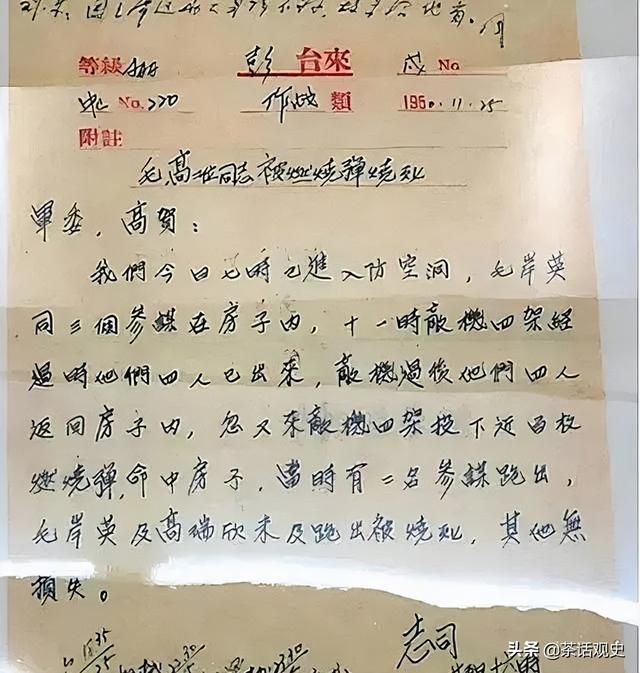 等級 彭 台來 戌 No
No. 220 作战 類 1950.11.25
附註
毛高二同志被燃燒彈燒死
軍委,高賀:
我們今日七時已進入防空洞,毛岸英
同三個參謀在房子內,十一時敵機四架經
過時他們四人已出來,敵機過後他們四人
返回房子內,忽又來敵機四架投下近百枚
燃燒彈,命中房子,當時有二名參謀跑出,
毛岸英及高瑞欣未及跑出被燒死,其他無
損失。
志司
头条 @茶话观史